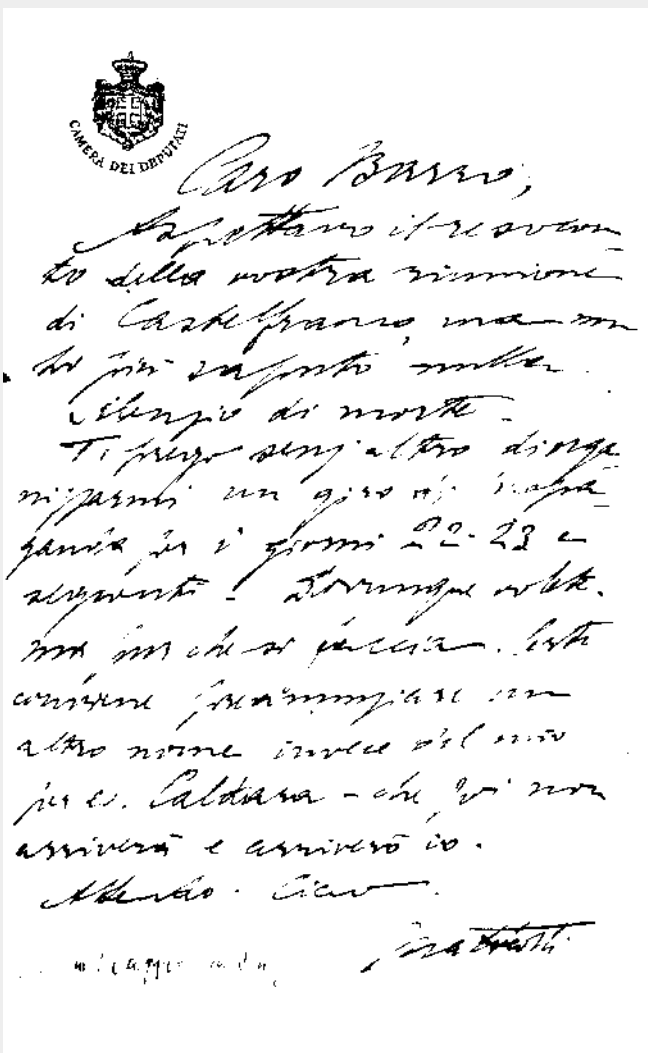 CAMERA DEI DEPUTATI
Caro Basso,
Aspettavo il resocon-
to della vostra riunione
di Castelfranco, ma non
ho più saputo nulla.
Silenzio di morte -
Ti prego senz'altro di orga
nizzarmi un giro di propa-
ganda per i giorni 22-23 e
seguenti - Dovunque volete.
ma pur che si faccia.
conviene preannunziare un
altro nome invece del mio
per es. Caldara - che poi non
arriverà e arriverò io.
Attendo. Ciao.
Matteotti